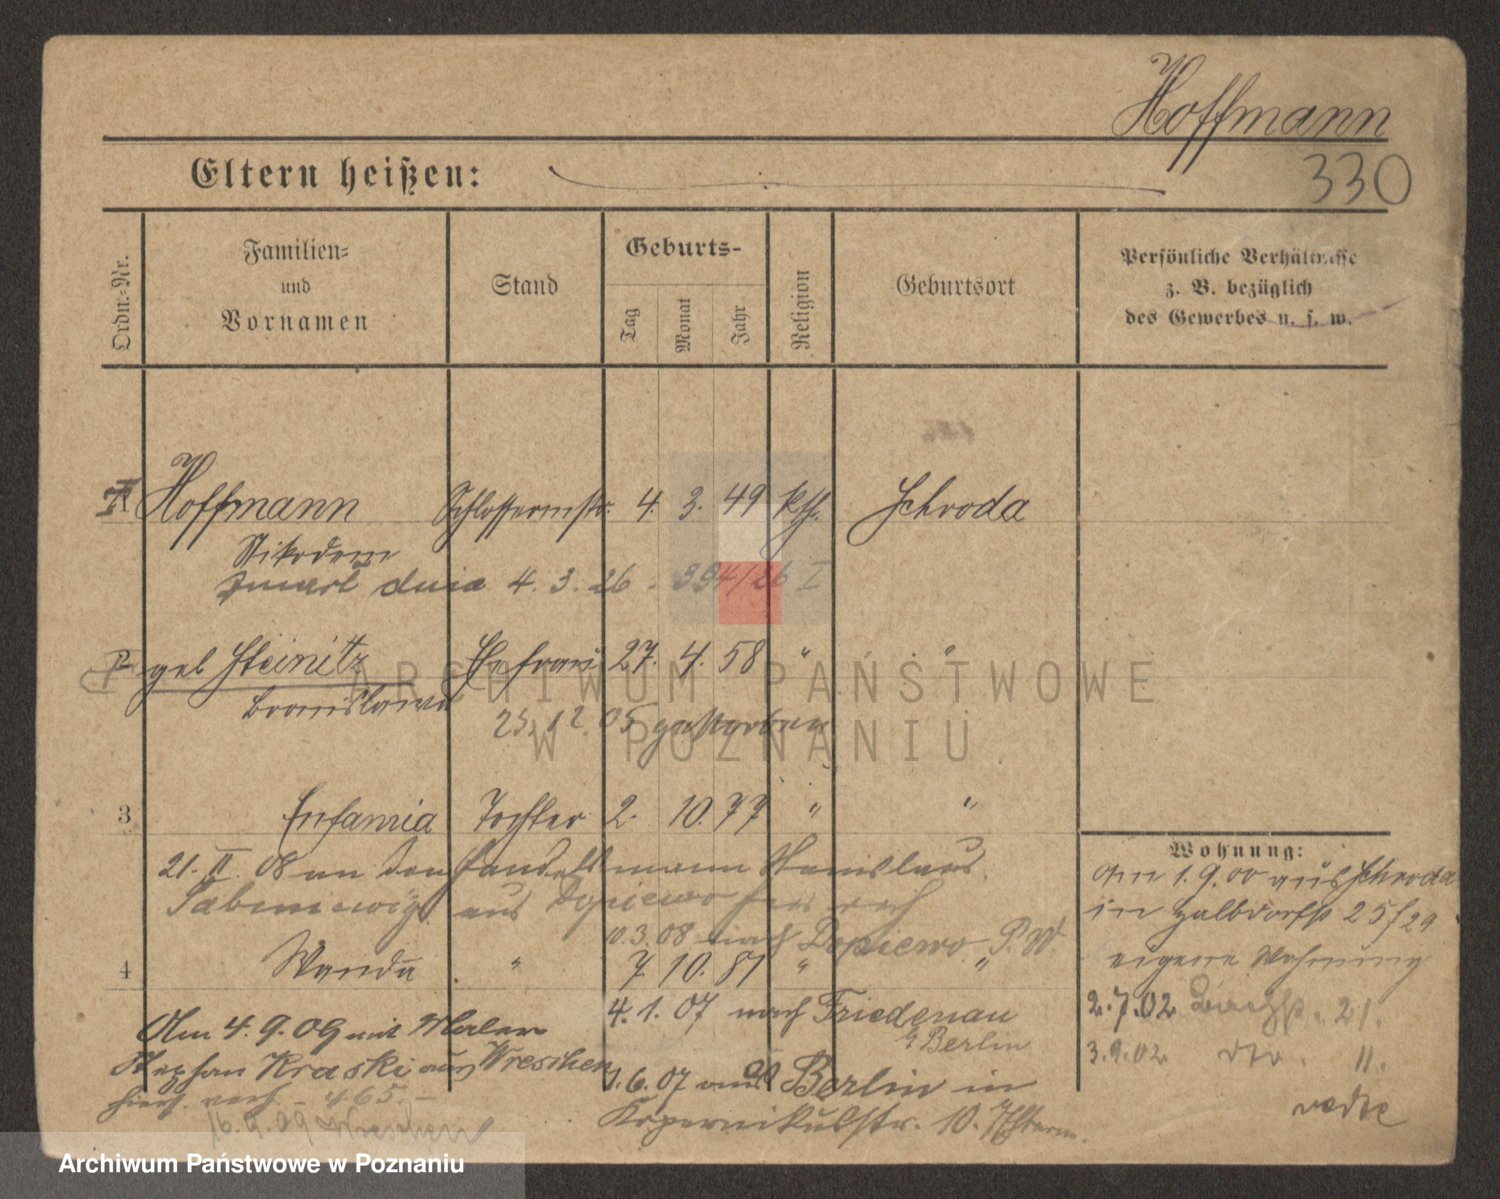 Hoffmann
330
Eltern heißen:
Ordn.-Nr.
Familien-
und
Vornamen
Stand
Geburts-
Tag
Monat
Jahr
Religion
Geburtsort
Persönliche Verhältnisse
z. B. bezüglich
des Gewerbes u. s. w.
Hoffmann Schlossermstr. 4. 3. 49 kth. Schroda
Nikodem
zmarł dnia 4.3.26 - 394/26 I
2 geb Steinitz Ehefrau 27. 4. 58 " "
Bronislawa
25.12.05 gestorben
3 Eufamia Tochter 2. 10. 77 " "
21. II. 08 an den Handelsmann Stanislaus
aus Dopiewo
10.3.08 nach Dopiewo P. W
4 Wanda " 7. 10. 81 " "
4. 1. 07 nach Friedenau
Berlin
Am 4.9.09 mit Maler
Stephan Kraski aus Wreschen
hier verh. - 465. -
16.9.09 Wreschen
1.6.07 aus Berlin in
Kopernikusstr. 10.
Wohnung:
Am 1.9.00 aus Schroda
in Halbdorfstr 25/29
eigene Wohnung
2.7.02 21.
3.9.02 dto. 11.
ARCHIWUM PAŃSTWOWE
W POZNANIU
Archiwum Państwowe w Poznaniu